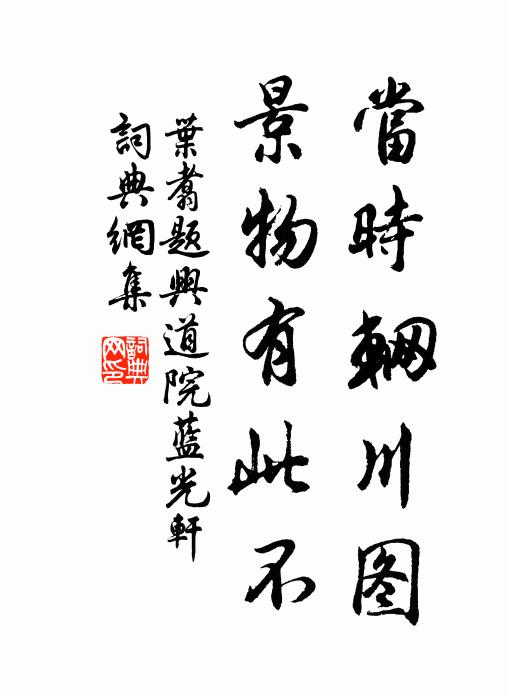 當時輞川图
景物有此不
葉翥题興道院藍光軒
詞典網集
詞典网印